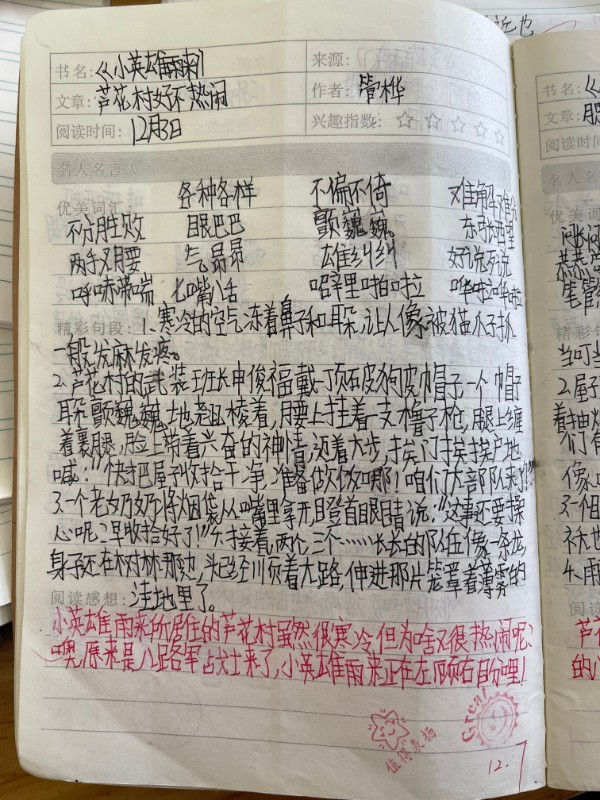 近也
书名:《小英雄雨来》 来源:
文章: 芦花村好不热闹 作者: 管桦
阅读时间: 12月3日 兴趣指数: ☆☆☆☆☆
名人名言
优美词汇 各种各样 不偏不倚 难解难分
不分胜败 眼巴巴 颤巍巍 东张西望
两手叉腰 气昂昂 雄纠纠 好说歹说
呼哧带喘 七嘴八舌 噼里啪啦 哗啦哗啦
精彩句段: 1.寒冷的空气,冻着鼻子和耳朵,让人像被猫不抓
一般发麻发疼。
2.芦花村的武装班长申俊福戴一顶破皮狗皮帽子,一个帽子
耳朵颤巍巍地翘棱着,腰上挂着一支橹子枪,用腿上缠
着裹腿,脸上带着兴奋的神情,迈着大步,挨门挨户地
喊:“快把屋子收拾干净,准备做饭哪!咱们大部队来了!”
3.一个老奶奶将烟袋从嘴里拿开,瞪着眼睛说:“这事还要操
心呢?早收拾好了!”4.接着,两个,三个……长长的队伍像一条龙,
身子还在树林那边,头已经顺着大路,伸进那片笼罩着薄雾的
洼地里了。
阅读感想:
小英雄雨来所居住的芦花村虽然很寒冷,但为啥又很热闹呢?
噢,原来是八路军战士来了,小英雄雨来正在左顾右盼哩!
值得表扬
Great
12.7
书名:《
文章:
阅读时
名人名